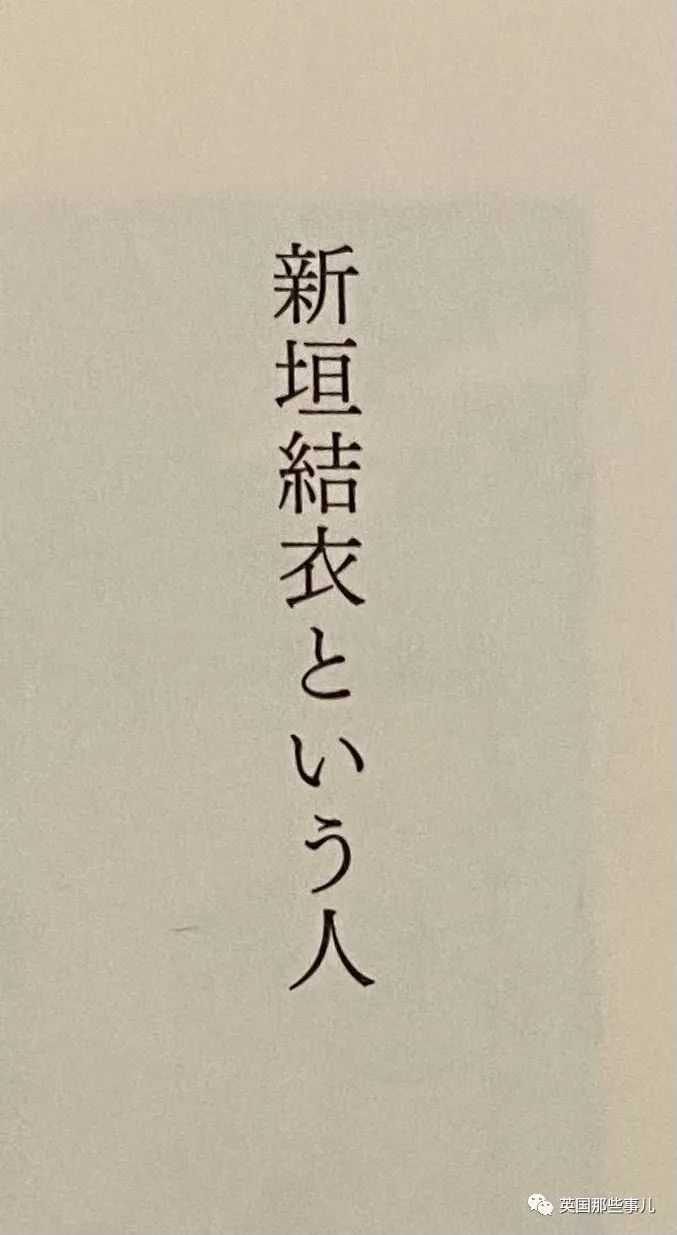 新垣結衣という人
英国那些事儿